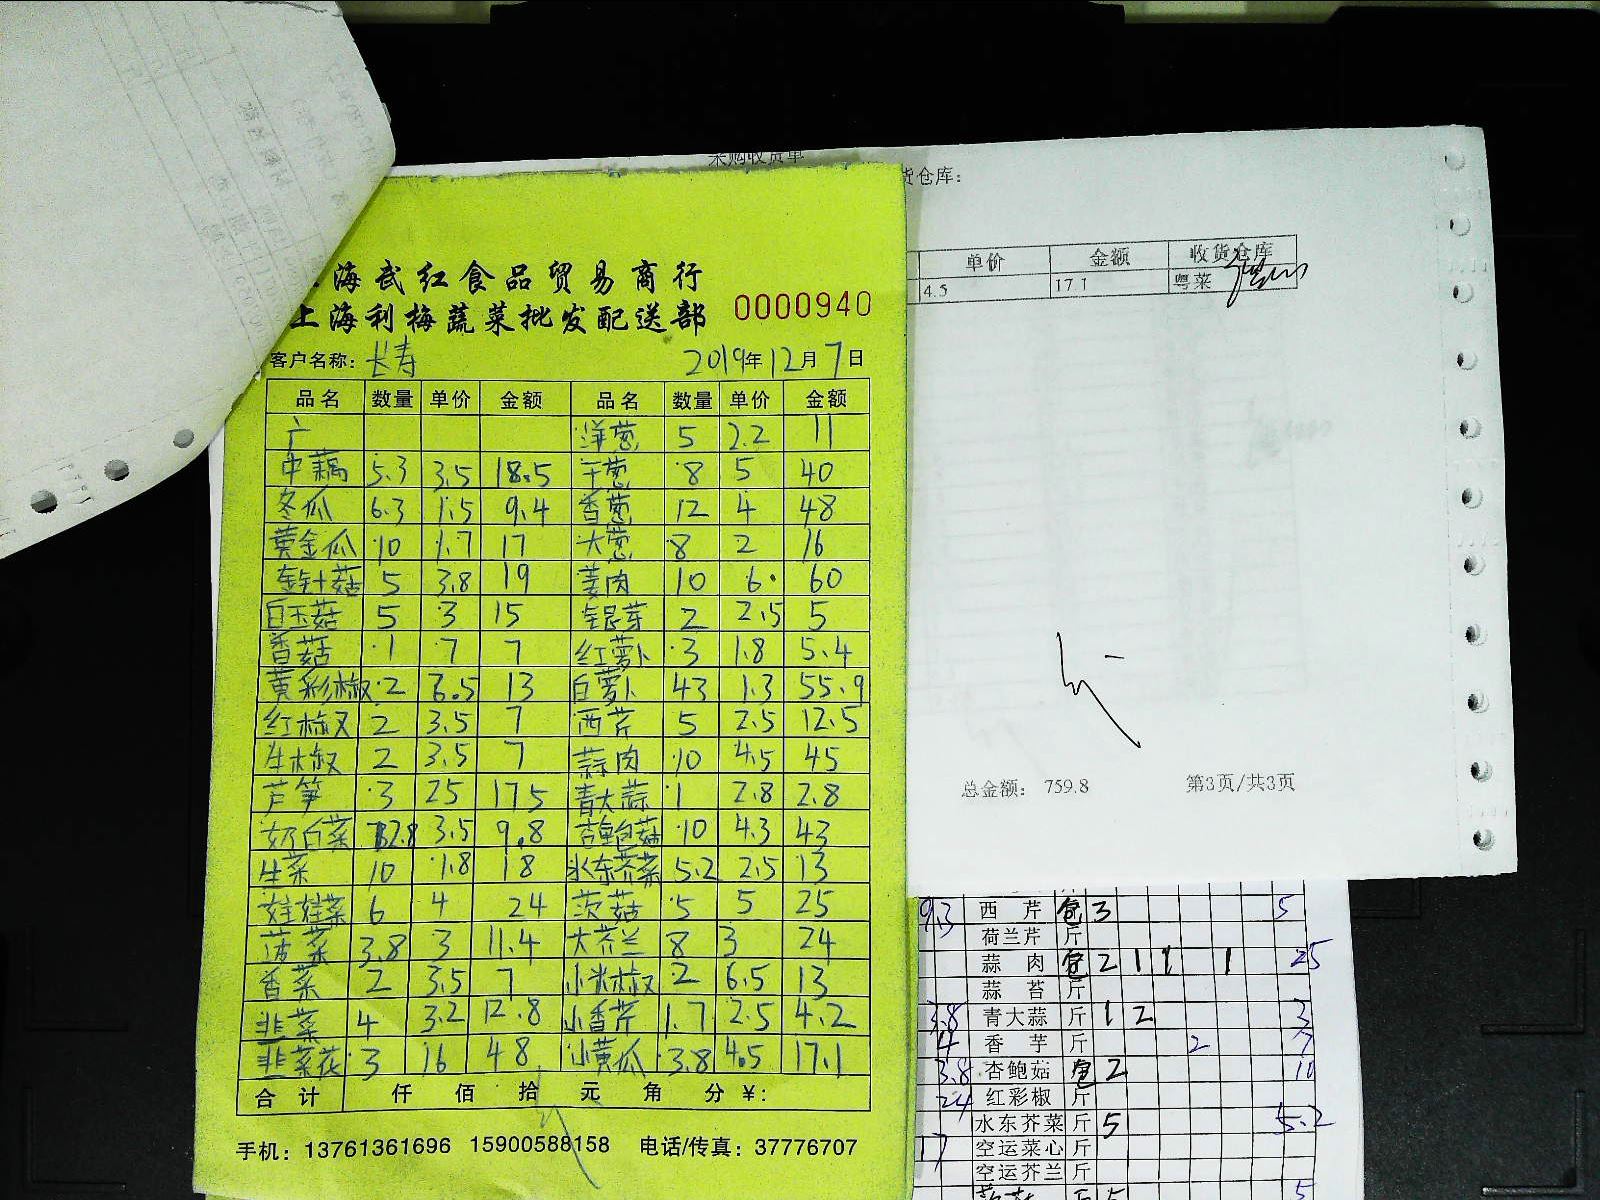 采购收货单
货仓库：
单价 金额 收货仓库
4.5 17.1 粤菜
海武红食品贸易商行
上海利梅蔬菜批发配送部 0000940
客户名称：长寿 2019年12月7日
品名 数量 单价 金额 品名 数量 单价 金额
洋葱 5 2.2 11
中藕 5.3 3.5 18.5 干葱 8 5 40
冬瓜 6.3 1.5 9.4 香葱 12 4 48
黄金瓜 10 1.7 17 大葱 8 2 16
金针菇 5 3.8 19 姜肉 10 6 60
白玉菇 5 3 15 银芽 2 2.5 5
香菇 1 7 7 红萝卜 3 1.8 5.4
黄彩椒 2 6.5 13 白萝卜 43 1.3 55.9
红椒 2 3.5 7 西芹 5 2.5 12.5
牛椒 2 3.5 7 蒜肉 10 4.5 45
芦笋 3 25 175 青大蒜 1 2.8 2.8
奶白菜 2.8 3.5 9.8 杏鲍菇 10 4.3 43
生菜 10 1.8 18 水东芥菜 5.2 2.5 13
娃娃菜 6 4 24 茨菇 5 5 25
菠菜 3.8 3 11.4 大芥兰 8 3 24
香菜 2 3.5 7 小米椒 2 6.5 13
韭菜 4 3.2 12.8 小香芹 1.7 2.5 4.2
韭菜花 3 16 48 小黄瓜 3.8 4.5 17.1
合计 仟 佰 拾 元 角 分 ¥:
手机：13761361696 15900588158 电话/传真：37776707
总金额： 759.8 第3页/共3页
9.3 西芹 包 3 5
荷兰芹 斤
蒜肉 包 2 1 1 1 25
蒜苔 斤
3.8 青大蒜 斤 1 2 3
4 香芋 斤 2 7
3.8 杏鲍菇 包 2 10
24 红彩椒 斤
水东芥菜 斤 5 5.2
17 空运菜心 斤
空运芥兰 斤
斤 5 5